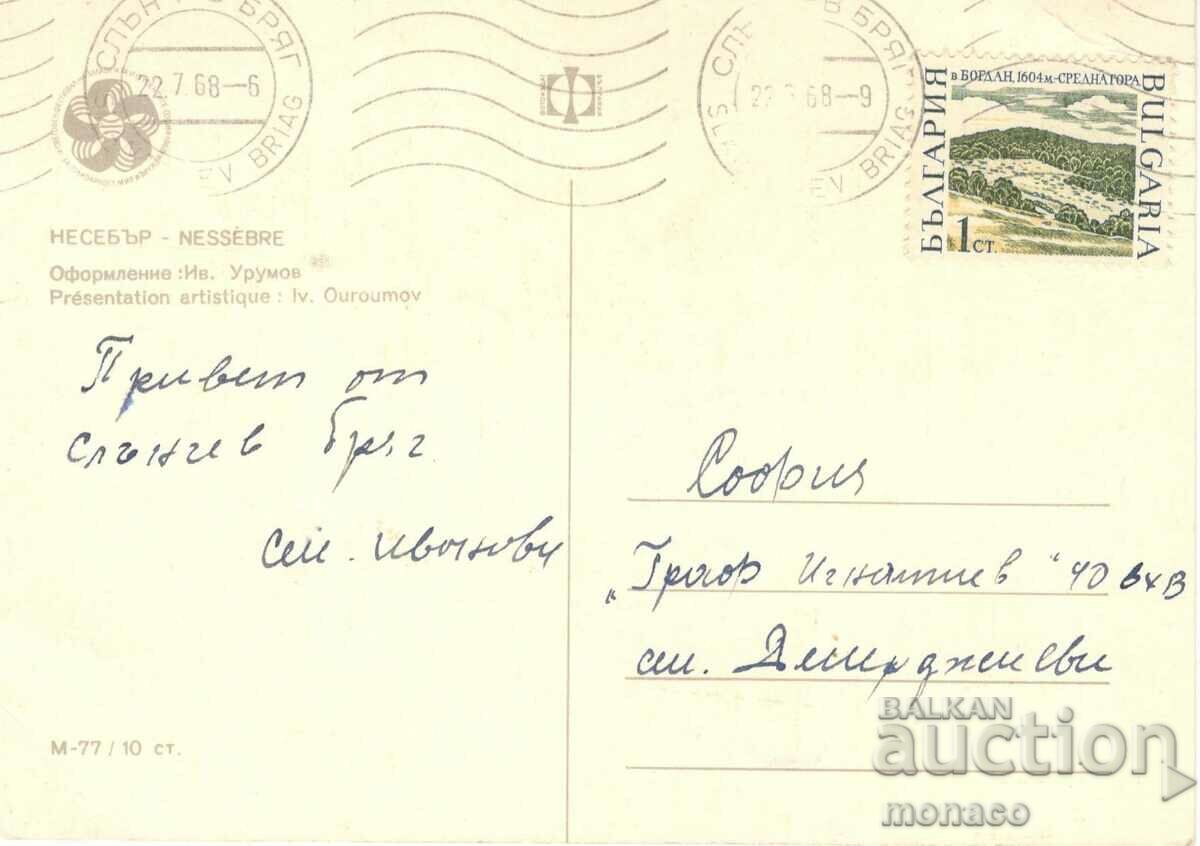 СЛЪН В БРЯГ
22.7.68-6
EV BRIAG
СЛЪ В БРЯГ
22.7.68-9
EV BRIAG
в. БОГДАН, 1604 м-СРЕДНА ГОРА
БЪЛГАРИЯ
BULGARIA
1 СТ.
НЕСЕБЪР - NESSÉBRE
Оформление : Ив. Урумов
Présentation artistique : Iv. Ouroumov
Привет от
слънчев бряг.
сем. Иванови
София
"Граф Игнатиев" 40 вх В
сем. Демирджиеви
М-77 / 10 ст.
BALKAN
auction
monaco